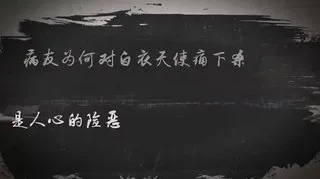 病友为何对白衣天使痛下杀
是人心的险恶